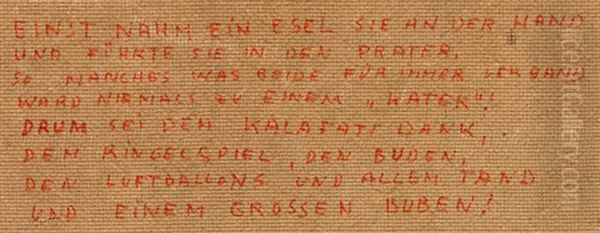 EINST NAHM EIN ESEL SIE AN DER HAND
UND FÜHRTE SIE IN DEN PRATER,
SO MANCHES WAS BEIDE FÜR IMMER VERBAND
WARD NIEMALS ZU EINEM „KATER"!
DRUM SEI DEM KALAFATI DANK,
DEM RINGELSPIEL, DEN BUDEN,
DEN LUFTBALLONS UND ALLEM TAND
UND EINEM GROSSEN BUBEN!